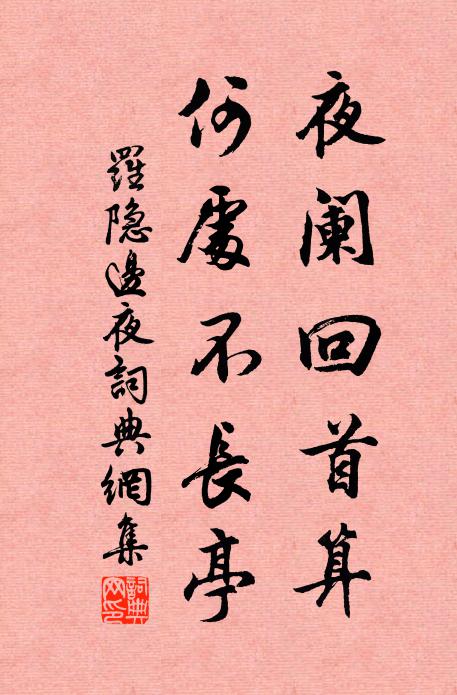 夜阑回首算
何處不長亭
羅隐邊夜詞典網集
詞典網印